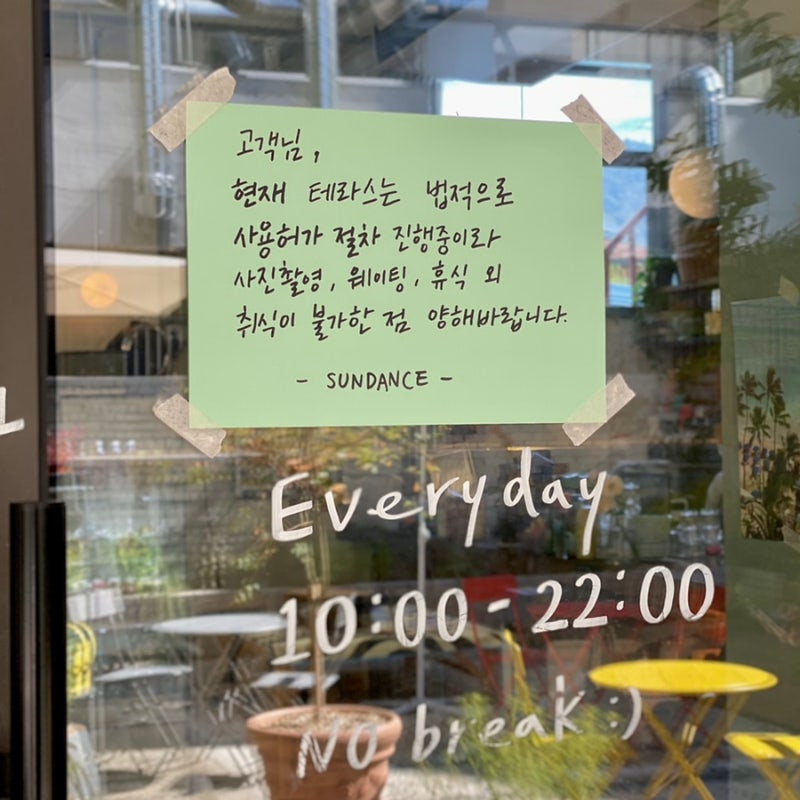 고객님,
현재 테라스는 법적으로
사용허가 절차 진행중이라
사진촬영, 웨이팅, 휴식 외
취식이 불가한 점 양해바랍니다.
- SUNDANCE -
Everyday
10:00 - 22:00
No break :)